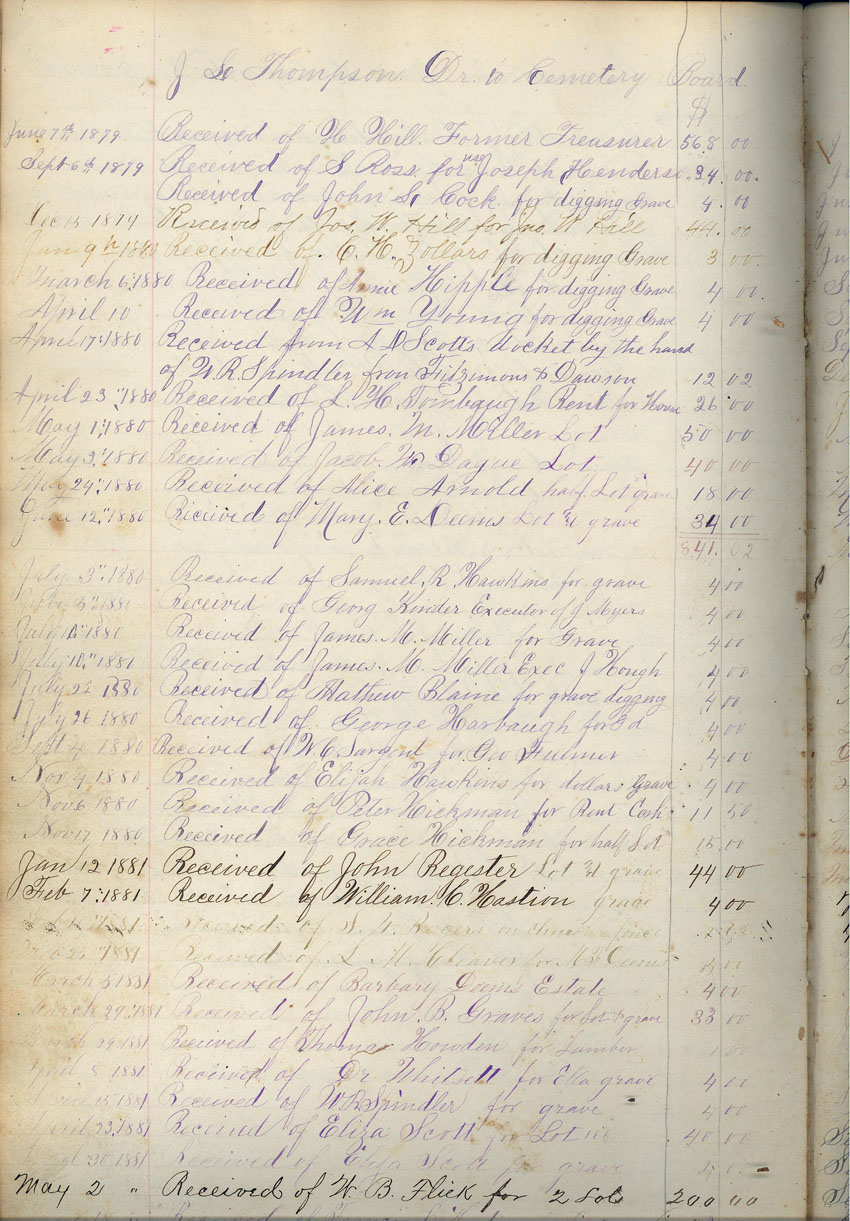 J L Thompson Dr. to Cemetery Board
$
June 7th 1879 Received of H Hill. Former Treasurer 568 00
Sept 6th 1879 Received of S Ross. for use Joseph Henderso 34 00.
Received of John S. Cock. for digging Grave 4. 00
Dec 15 1874 Received of Jos. W. Hill for Jno. W Hill 44. 00
Jan 9th 1880 Received of. C. H. Zollars for digging Grave 3 00
March 6, 1880 Received of Annie Hipple for digging Grave 4 00.
April 10 Received of Wm Young for digging Grave 4 00
April 17" 1880 Received from A D Scotts docket by the hand
of W. R. Spindler from Fitzimons & Dawson 12 02
April 23" 1880 Received of L. H. Tombaugh Rent for House 26 00
May 1" 1880 Received of James. M. Miller Lot 50 00
May 3" 1880 Received of Jacob. W Dague Lot 40 00
May 24" 1880 Received of Alice Arnold half Lot grave 18 00
June 12" 1880 Riceived of Mary. E. Deems Lot & grave 34 00
841. 02
July 3" 1880 Received of Samuel, R Hawkins for grave 4 00
1880 Received of Georg Kinder Executor of J Myers 4 00
July 1880 Received of James. M. Miller for Grave 4 00
July 10" 1880 Received of James. M. Miller Exec J Hough 4 00
July 22 1880 Received of Mathew Blaine for grave digging 4 00
July 26 1880 Received of George Harbaugh for Gd 4 00
Sept 4 1880 Received of W C Sargent for Geo Fulmer 4 00
Nov 4 1880 Received of Elijah Hawkins for dollars Grave 4 00
Nov 6 1880 Received of Peter Hickman for Rent Cash 11 50
Nov 17 1880 Received of Grace Hickman for half Lot 15 00
Jan 12 1881 Received of John Regester Lot & grave 44 00
Feb 7" 1881 Received of William. C. Hastion grave 4 00
1881 Received of S. W. Rogers on
1881 Received of L. M. Cleaver for 4 00
March 5 1881 Received of Barbary Deems Estate 4 00
March 29" 1881 Received of John B. Graves for Lot & grave 33 00
29 1881 Received of Thomas Howden for Lumber 00
April 8 1881 Received of Dr Whitsett for Ella grave 4 00
April 15 1881 Received of W R Spindler for grave 4 00
April 23, 1881 Recieved of Eliza Scott for Lot 40 00
30 1881 Received of Eliza Scott for grave 4 00
May 2 " Received of W. B. Flick for 2 Lots 200 00